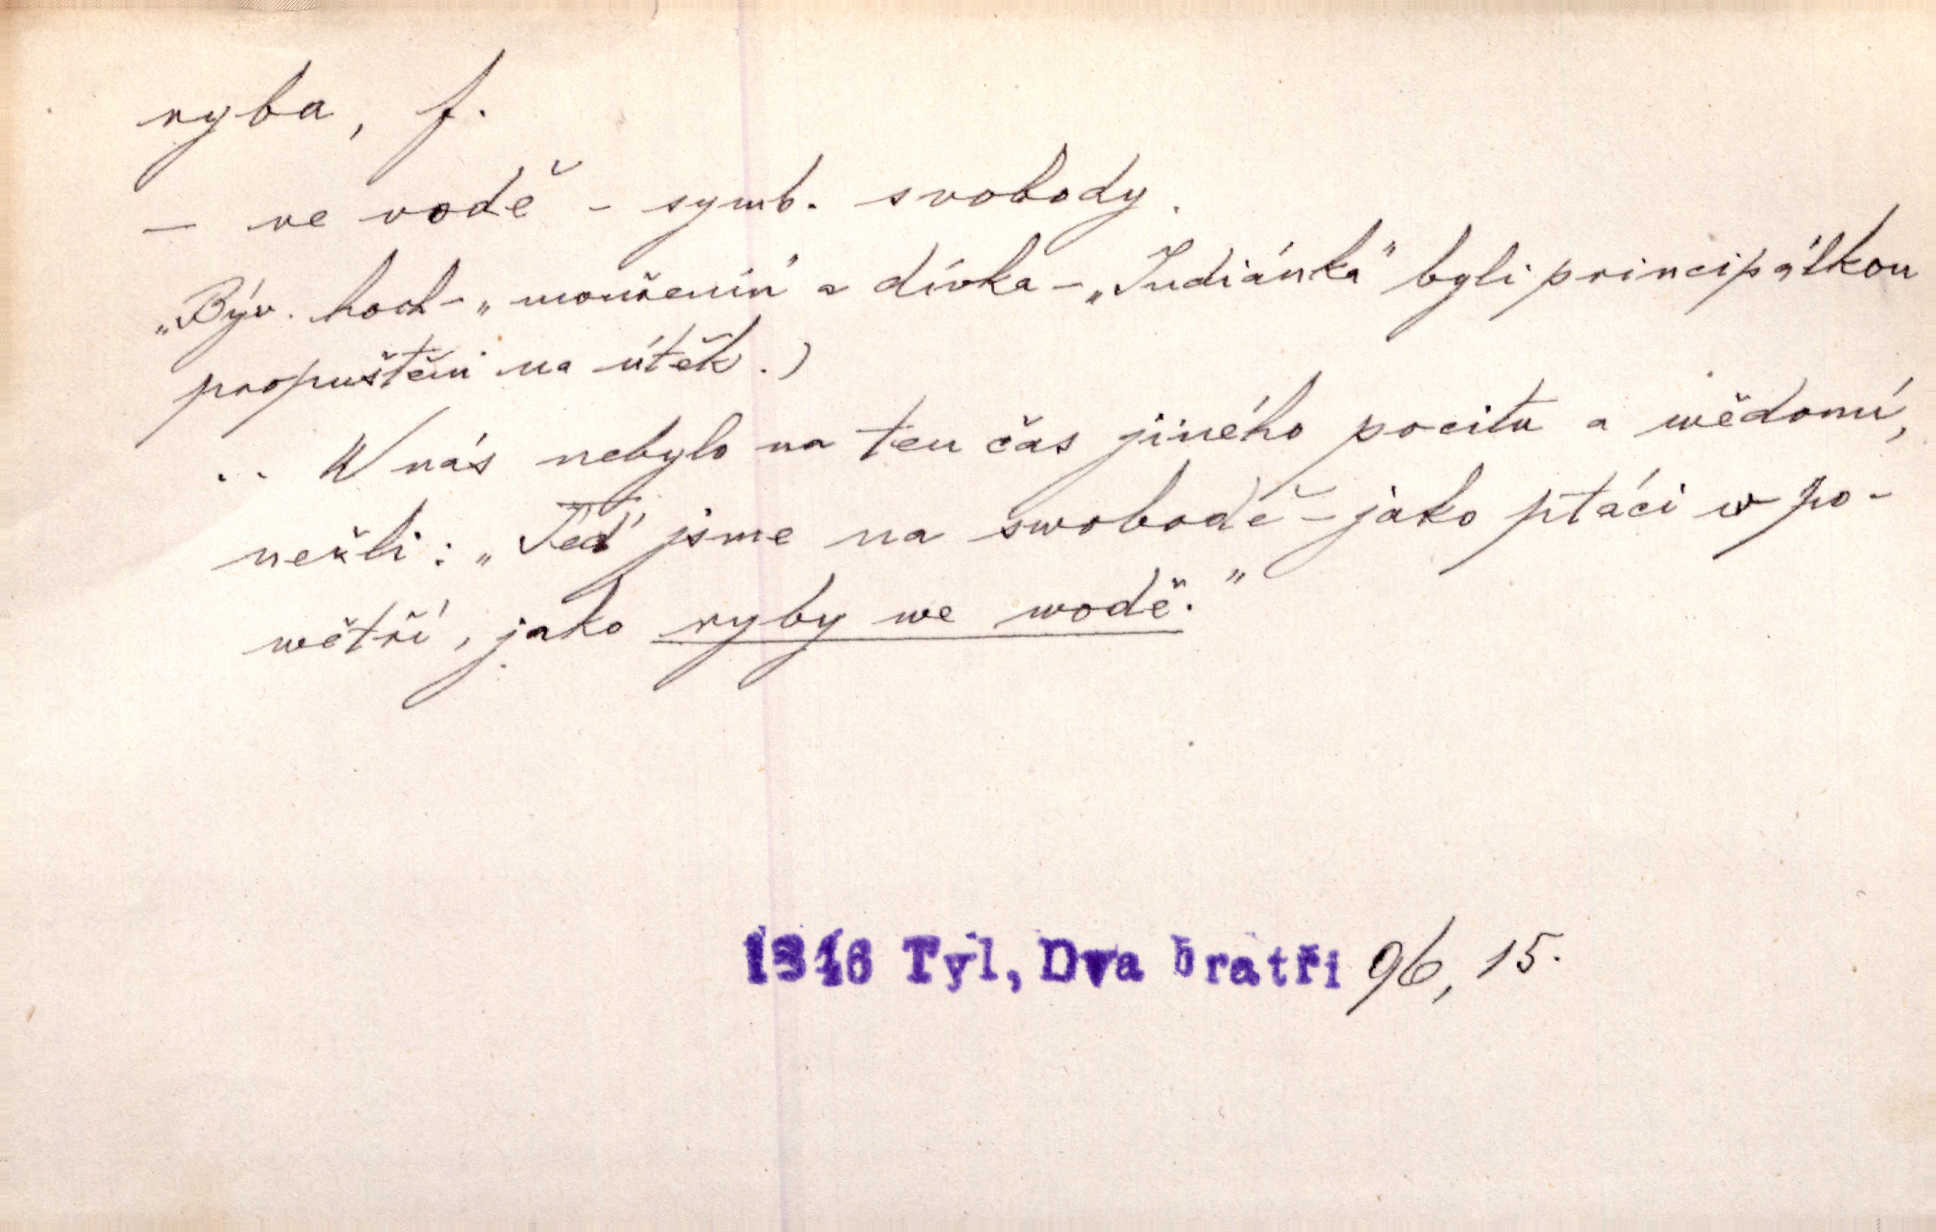 ryba, f.
– ve vodě – symb. svobody.
„Býv. hoch – „mouřenín" a dívka – „Indiánka" byli principálkou
propuštěni na útěk.)
.. W nás nebylo na ten čas jiného pocitu a wědomí,
nežli: „Teď jsme na swobodě – jako ptáci w po-
wětří, jako ryby we wodě."
1846 Tyl, Dva bratři 96, 15.